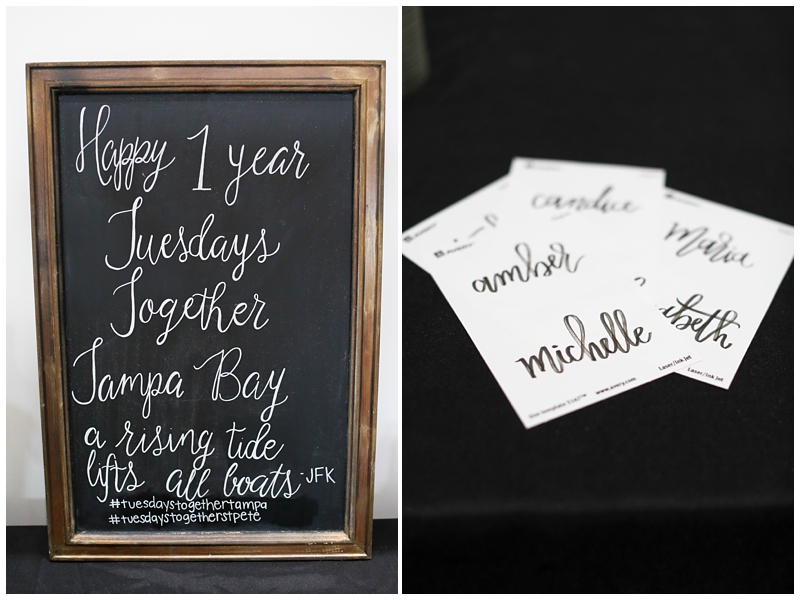 Happy 1 year
Tuesdays
Together
Tampa Bay
a rising tide
lifts all boats -JFK
#tuesdaystogethertampa
#tuesdaystogetherstpete
candice
amber
michelle
maria
ibeth
Use template 5167™ www.avery.com
Laser/Ink Jet
Laser/Ink Jet